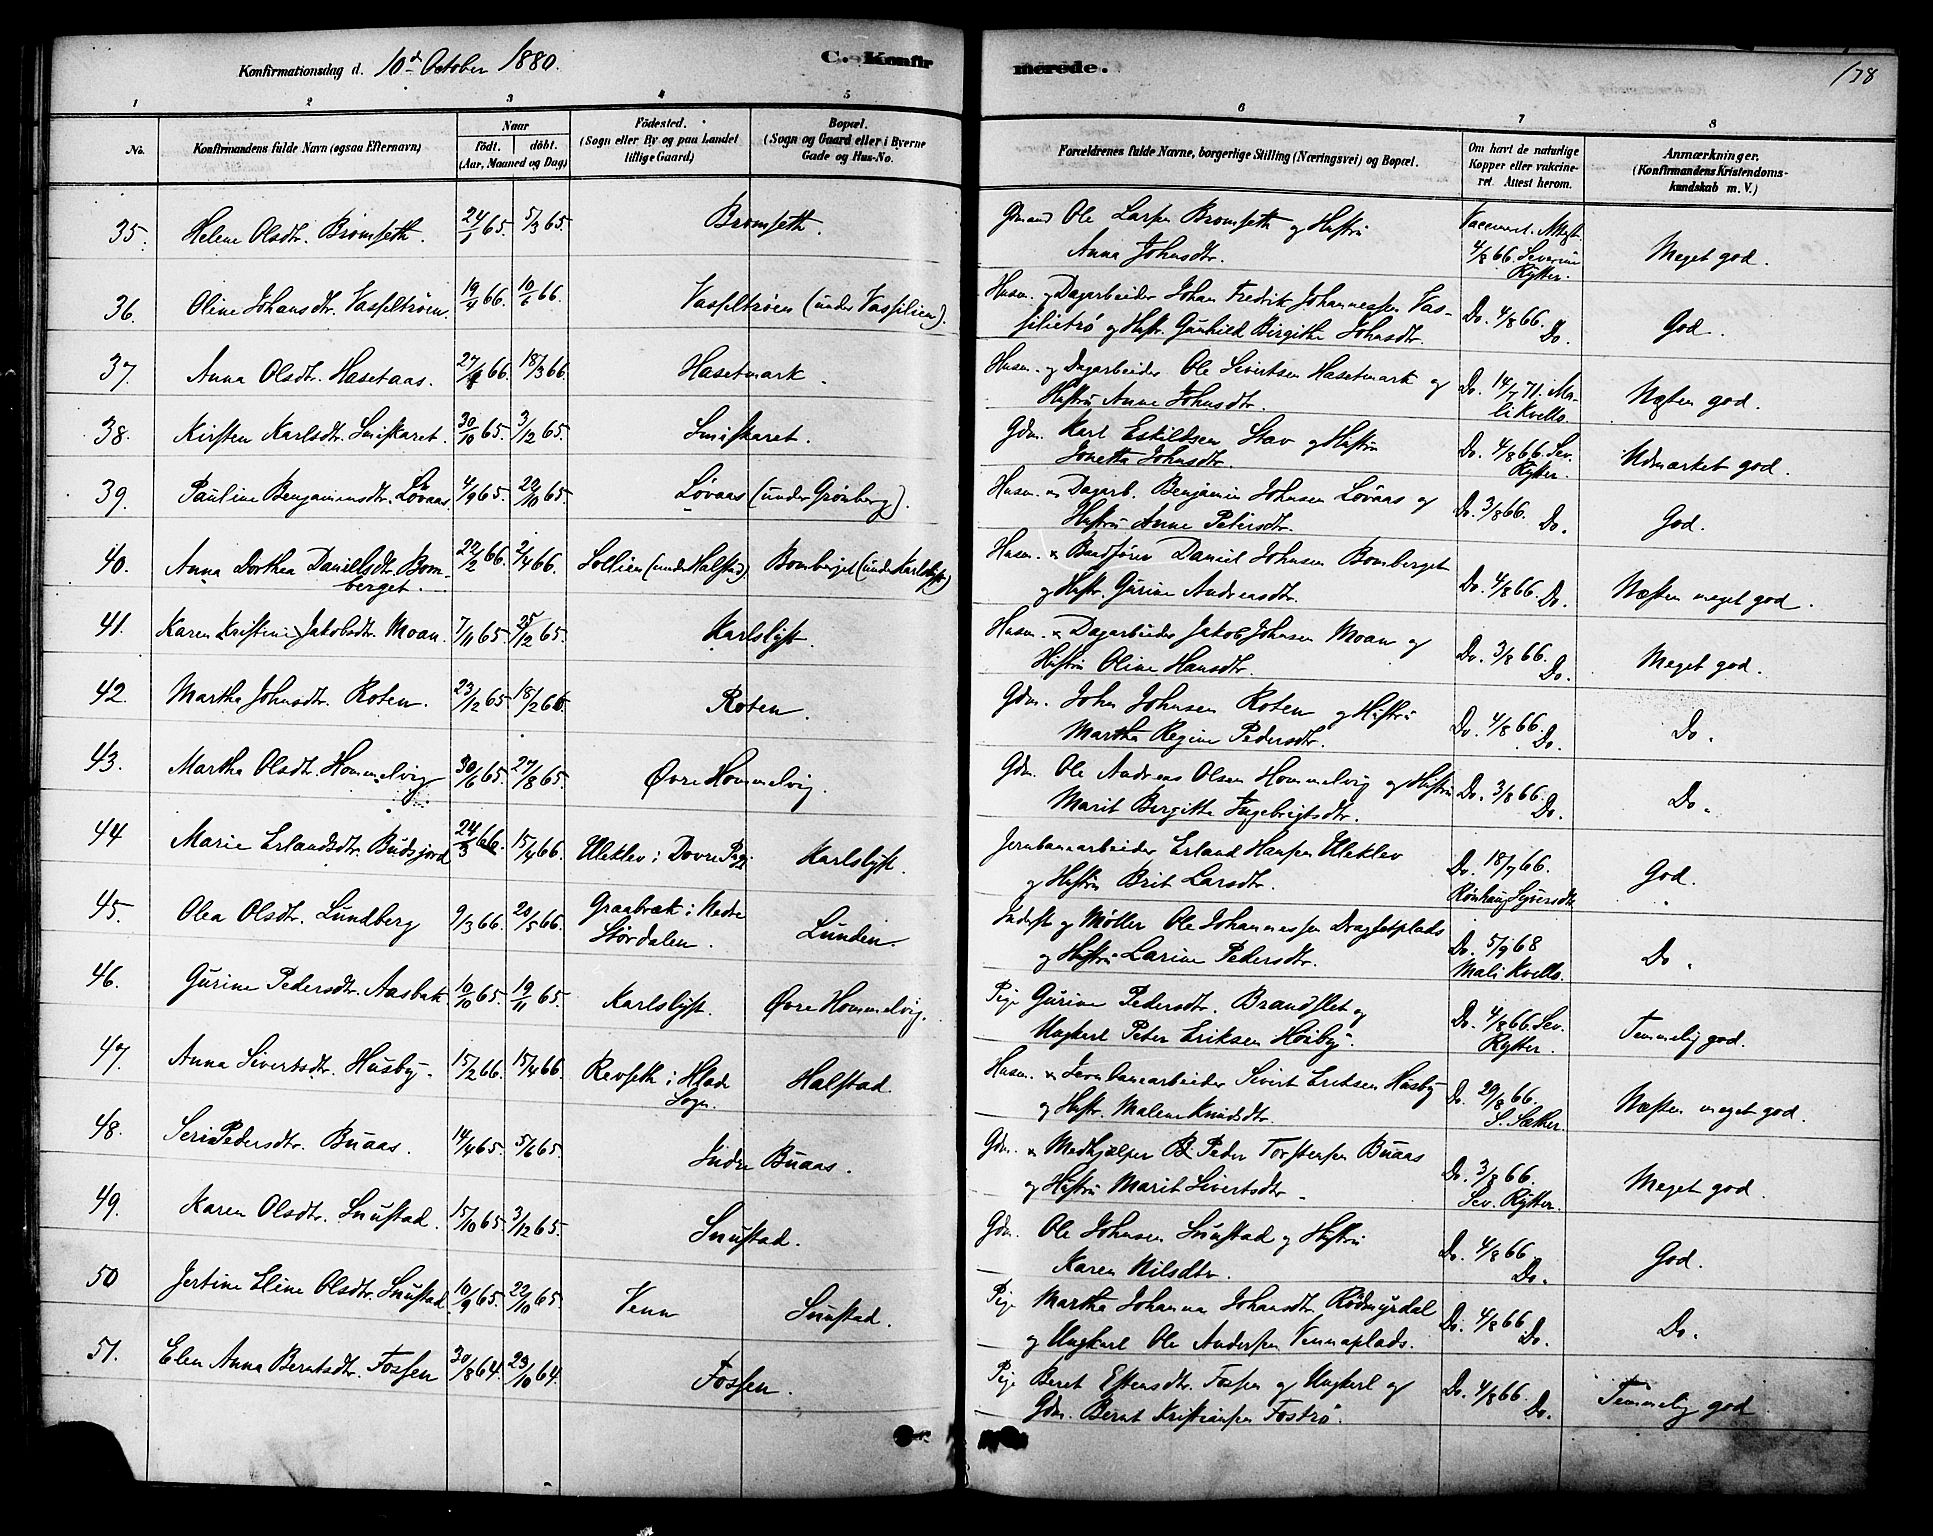 Konfirmationsdag d. 10d October 1880. C. Konfirmerede. 138
1 2 3 4 5 6 7 8
No. Konfirmandens fulde Navn (ogsaa Efternavn) Naar födt. döbt. (Aar, Maaned og Dag) Födested. (Sogn eller By og paa Landet tillige Gaard) Bopæl. (Sogn og Gaard eller i Byerne Gade og Hus-No. Forældrenes fulde Navne, borgerlige Stilling (Næringsvei) og Bopæl. Om havt de naturlige Kopper eller vakcineret. Attest herom. Anmærkninger. (Konfirmandens Kristendomskundskab m. V.)
35. Helene Olsdtr. Bromseth. 24/1 65. 5/3 65. Bromseth. Gmand Ole Larsen Bromseth og Hustru
Anna Johnsdtr. Vaccineret. Attest 4/8 66. Severine Rytter. Meget god.
36. Oline Johansdtr. Vasseltrøen. 19/4 66. 10/6 66. Vasseltrøen (under Vassilien). Husm. og Dagarbeider Johan Fredrik Johannessen Vas-
silietrø og Hstr. Gunhild Birgithe Johnsdtr. Do. 4/8 66. Do. God.
37. Anna Olsdtr. Hasetaas. 27/1 66. 18/3 66. Hasetmark. Husm. og Dagarbeider Ole Sivertsen Hasetmark og
Hustru Anne Johnsdtr. Do. 14/7 71. Mali Kvello. Næsten god.
38. Kirsten Karlsdtr. Smiskaret. 30/10 65. 3/12 65. Smiskaret. Gdm. Karl Eskildsen Stav og Hustru
Jonetta Johnsdtr. Do. 4/8 66. Sev. Rytter. Udmærket god.
39. Pauline Benjaminsdtr. Løvaas. 4/9 65. 22/10 65. Løvaas (under Grønberg). Husm. og Dagarb. Benjamin Johnsen Løvaas og
Hustru Anne Petersdtr. Do. 3/8 66. Do. God.
40. Anna Dorthea Danielsdtr. Bom-
berget. 22/2 66. 2/4 66. Sollien (under Halstad) Bomberget (under Karlslyst) Husm. & Baadfører Daniel Johnsen Bomberget
og Hstr. Gurine Andreasdtr. Do. 4/8 66. Do. Næsten meget god.
41. Karen Kristine Jakobsdtr. Moan. 7/11 65. 25/12 65. Karlslyst. Husm. & Dagarbeider Jakob Johnsen Moan og
Hustru Oline Hansdtr. Do. 3/8 66. Do. Meget god.
42. Martha Johnsdtr. Roten. 23/12 65. 18/2 66. Roten. Gdm. John Johnsen Roten og Hustru
Martha Regine Pedersdtr. Do. 4/8 66. Do. Do.
43. Martha Olsdtr. Hommelvig 30/6 65. 27/8 65. Øvre Hommelvig. Gdm. Ole Andreas Olsen Hommelvig og Hustru
Marit Bergitte Ingebrigtsdtr. Do. 3/8 66. Do. Do.
44 Marie Erlandsdtr. Budsjord 24/3 66. 15/4 66. Uleklev i Dovre Pgj. Karlslyst. Jernbanearbeider Erland Hansen Uleklev
og Hustru Brit Larsdtr. Do. 18/7 66. Rønhaug Syversdtr. God.
45. Olea Olsdtr. Lundberg 9/3 66. 20/5 66. Graabræk i Nedre
Størdalen. Lunden. Inderst og Møller Ole Johannessen Dragstplads
og Hustru Larine Pedersdtr. Do. 5/9 68 Mali Kvello. Do.
46. Gurine Pedersdtr. Aasbak. 10/10 65. 19/11 65. Karlslyst. Øvre Hommelvig. Pige Gurine Pedersdtr. Brandslet og
Ungkarl Peter Eriksen Høiby. Do. 4/8 66. Sev. Rytter. Temmelig god.
47. Anna Sivertsdtr. Husby. 15/2 66. 15/4 66. Revseth i Hlade
Sogn. Halstad. Husm. & Jernbanearbeider Sivert Eriksen Husby
og Hustr. Malene Knudsdtr. Do. 29/8 66. S. Sæther. Næsten meget god.
48. Seri Pedersdtr. Buaas. 14/4 65. 5/6 65. Indre Buaas. Gdm. & Medhjælper Peder Torstensen Buaas
og Hustru Marit Sivertsdtr. Do. 3/8 66. Sev. Rytter. Meget god.
49. Karen Olsdtr. Snustad. 15/10 65. 3/12 65. Snustad. Gdm. Ole Johnsen Snustad og Hustru
Karen Nilsdtr. Do. 4/8 66. Do. God.
50 Jertine Eline Olsdtr. Snustad. 10/9 65. 22/10 65. Venn Snustad. Pige Martha Johanna Johansdtr. Rødmyrdal
og Ungkarl Ole Andersen Vennaplads. Do. 4/8 66. Do. Do.
51. Elen Anna Berntsdtr. Fossen 30/8 64. 23/10 64. Fossen. Pige Beret Estensdtr. Fossen og Ungkarl og
Gdm. Bernt Kristiansen Fostrø. Do. 4/8 66. Do. Temmelig god